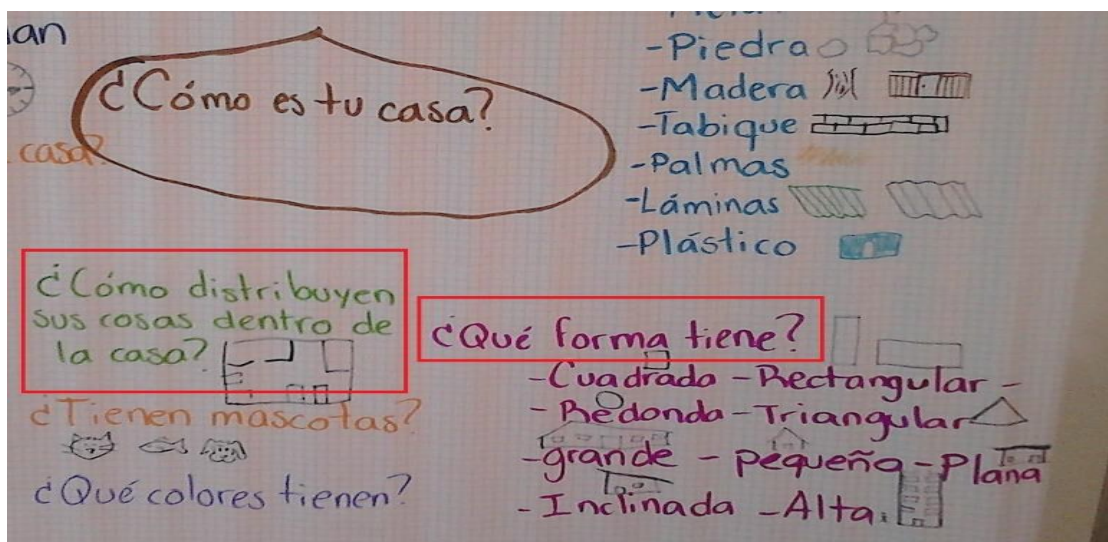 an
¿Cómo es tu casa?
casa?
-Piedra
-Madera
-Tabique
-Palmas
-Láminas
-Plástico
¿Cómo distribuyen
sus cosas dentro de
la casa?
¿Tienen mascotas?
¿Qué colores tienen?
¿Qué forma tiene?
-Cuadrada -Rectangular -
- Redonda -Triangular
-grande - pequeña -Plana
- Inclinada -Alta.